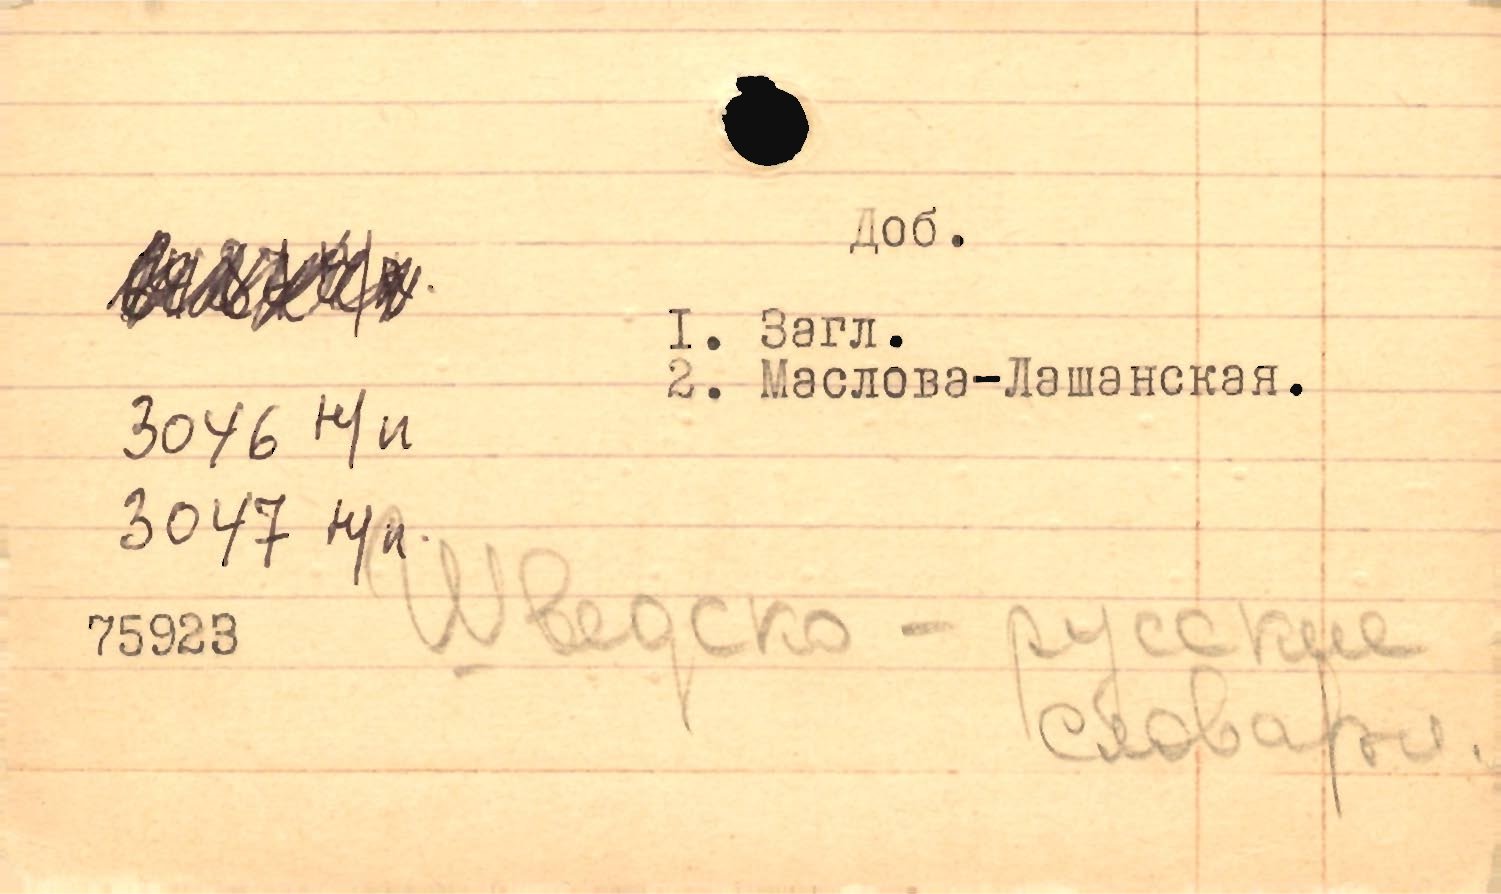 Доб.
I. Загл.
2. Маслова-Лашанская.
3046 н/и
3047 н/и.
75923
Шведско - русские
словари.